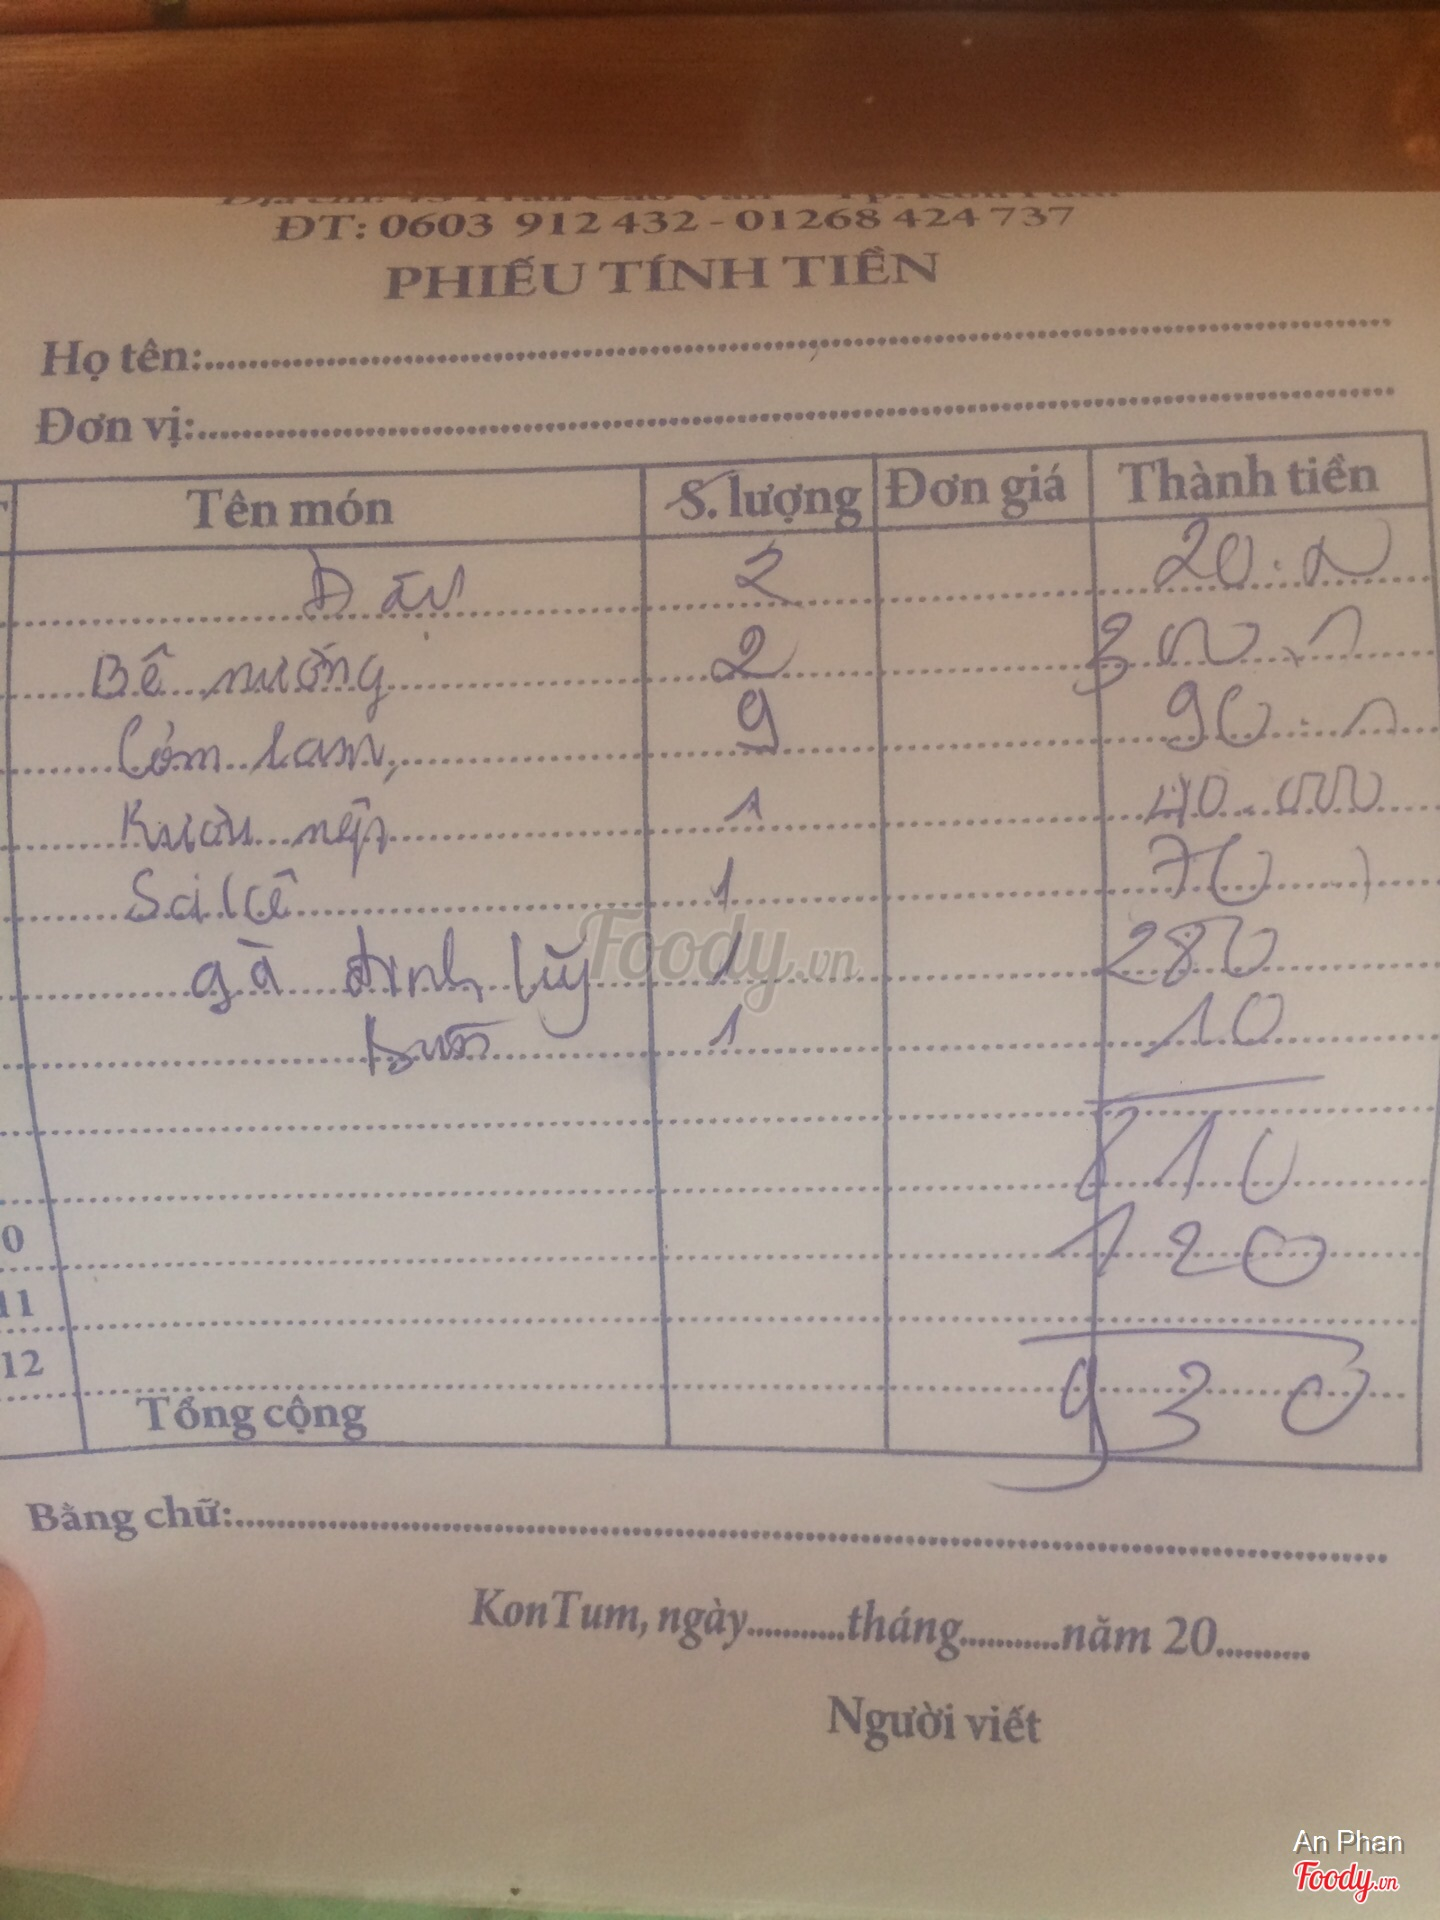 ĐT: 0603 912 432 - 01268 424 737
PHIẾU TÍNH TIỀN
Họ tên:
Đơn vị:
Tên món S. lượng Đơn giá Thành tiền
2 20
Bê nướng 2 300
Cơm lam, 9 90
nếp 1 40.000
1 70
gà 1 280
1 10
810
120
0
11
12
930
Tổng cộng
Bằng chữ:
KonTum, ngày tháng năm 20
Người viết
Foody.vn
An Phan
Foody.vn